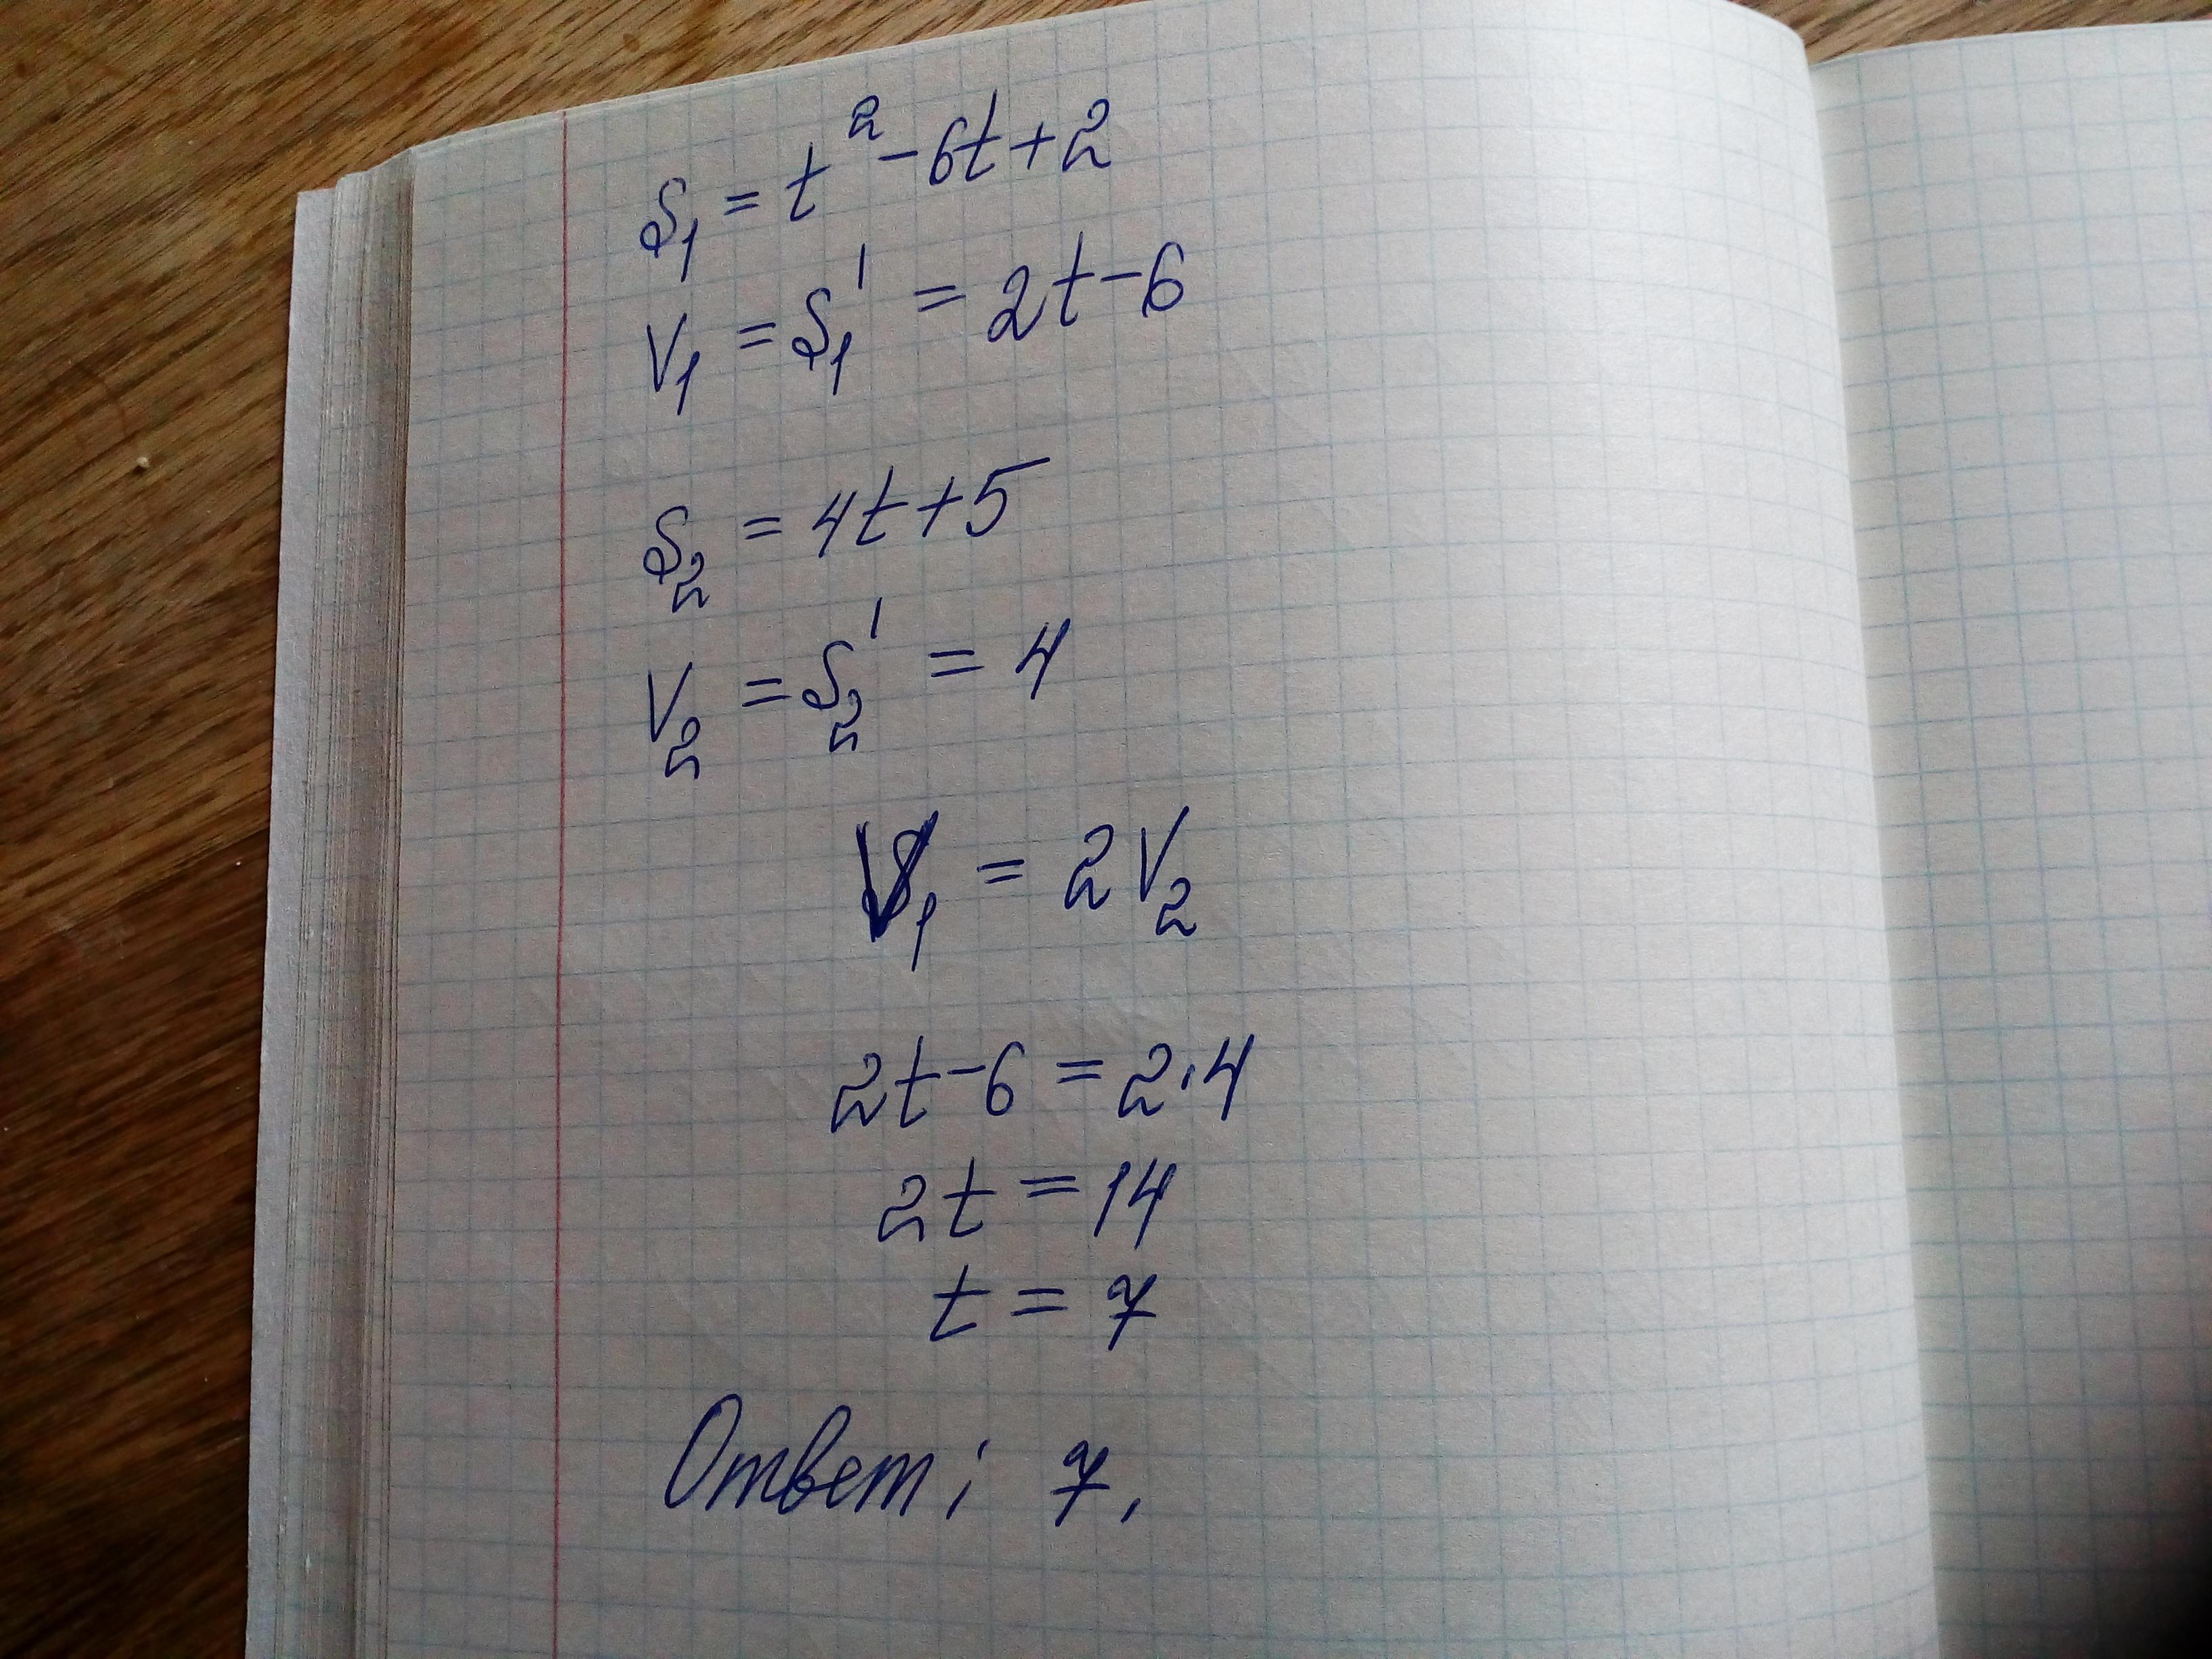 S₁ = t² - 6t + 2
V₁ = S₁' = 2t - 6
S₂ = 4t + 5
V₂ = S₂' = 4
V₁ = 2V₂
2t - 6 = 2·4
2t = 14
t = 7
Ответ: 7.